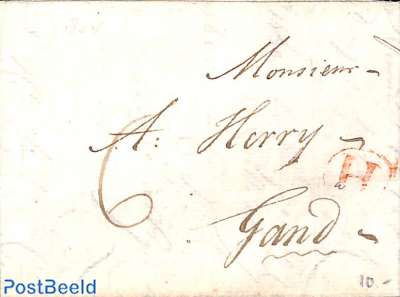 Monsieur
A: Herry
6
H
a
Gand
10-
PostBeeld